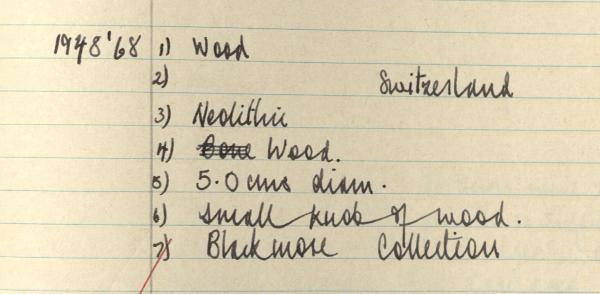 1948'68 1) Wood
2) Switzerland
3) Neolithic
4) Bone Wood.
5) 5.0 cms diam.
6) Small knob of wood.
7) Blackmore Collection